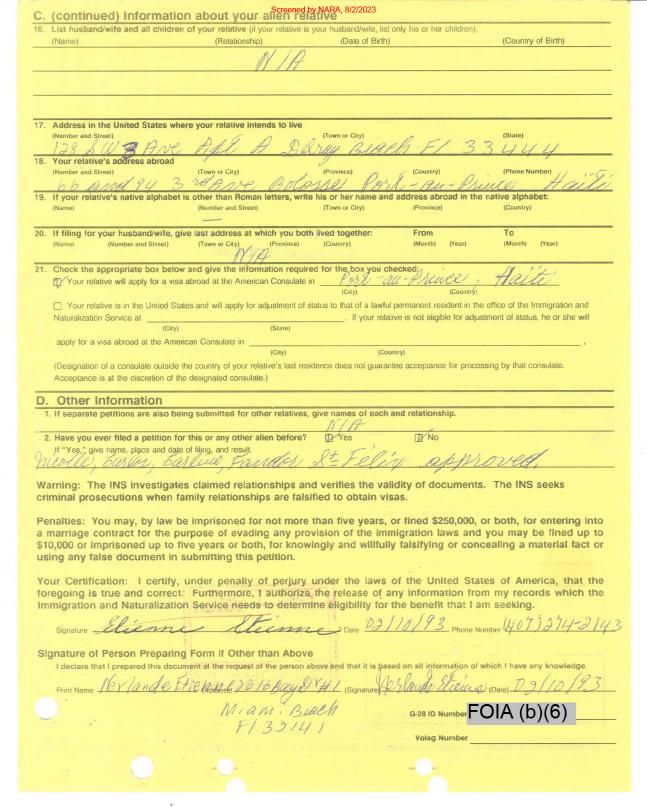 Screened by NARA, 8/2/2023
C. (continued) Information about your alien relative
16. List husband/wife and all children of your relative (if your relative is your husband/wife, list only his or her children).
(Name) (Relationship) (Date of Birth) (Country of Birth)
N/A
17. Address in the United States where your relative intends to live
(Number and Street) (Town or City) (State)
128 SW 3 Ave Apt A Delray Beach Fl 33444
18. Your relative's address abroad
(Number and Street) (Town or City) (Province) (Country) (Phone Number)
66 and 94 3rd Ave Bolosse Port-au-Prince Haiti
19. If your relative's native alphabet is other than Roman letters, write his or her name and address abroad in the native alphabet:
(Name) (Number and Street) (Town or City) (Province) (Country)
—
20. If filing for your husband/wife, give last address at which you both lived together: From To
(Name) (Number and Street) (Town or City) (Province) (Country) (Month) (Year) (Month) (Year)
N/A
21. Check the appropriate box below and give the information required for the box you checked:
Your relative will apply for a visa abroad at the American Consulate in Port-au-Prince, Haiti
(City) (Country)
Your relative is in the United States and will apply for adjustment of status to that of a lawful permanent resident in the office of the Immigration and
Naturalization Service at . If your relative is not eligible for adjustment of status, he or she will
(City) (State)
apply for a visa abroad at the American Consulate in ,
(City) (Country)
(Designation of a consulate outside the country of your relative's last residence does not guarantee acceptance for processing by that consulate.
Acceptance is at the discretion of the designated consulate.)
D. Other Information
1. If separate petitions are also being submitted for other relatives, give names of each and relationship.
N/A
2. Have you ever filed a petition for this or any other alien before? Yes No
If "Yes," give name, place and date of filing, and result.
Nicolle, Carlos, Carline, St Félix approved.
Warning: The INS investigates claimed relationships and verifies the validity of documents. The INS seeks
criminal prosecutions when family relationships are falsified to obtain visas.
Penalties: You may, by law be imprisoned for not more than five years, or fined $250,000, or both, for entering into
a marriage contract for the purpose of evading any provision of the immigration laws and you may be fined up to
$10,000 or imprisoned up to five years or both, for knowingly and willfully falsifying or concealing a material fact or
using any false document in submitting this petition.
Your Certification: I certify, under penalty of perjury under the laws of the United States of America, that the
foregoing is true and correct. Furthermore, I authorize the release of any information from my records which the
Immigration and Naturalization Service needs to determine eligibility for the benefit that I am seeking.
Signature Etienne Etienne Date 02/10/93 Phone Number (407) 274-2143
Signature of Person Preparing Form if Other than Above
I declare that I prepared this document at the request of the person above and that it is based on all information of which I have any knowledge.
Print Name Norlande Etienne (Address) 2016 Bay Dr #1 (Signature) Norlande Etienne (Date) 02/10/93
Miami Beach
Fl 33141
G-28 ID Number FOIA (b)(6)
Volag Number